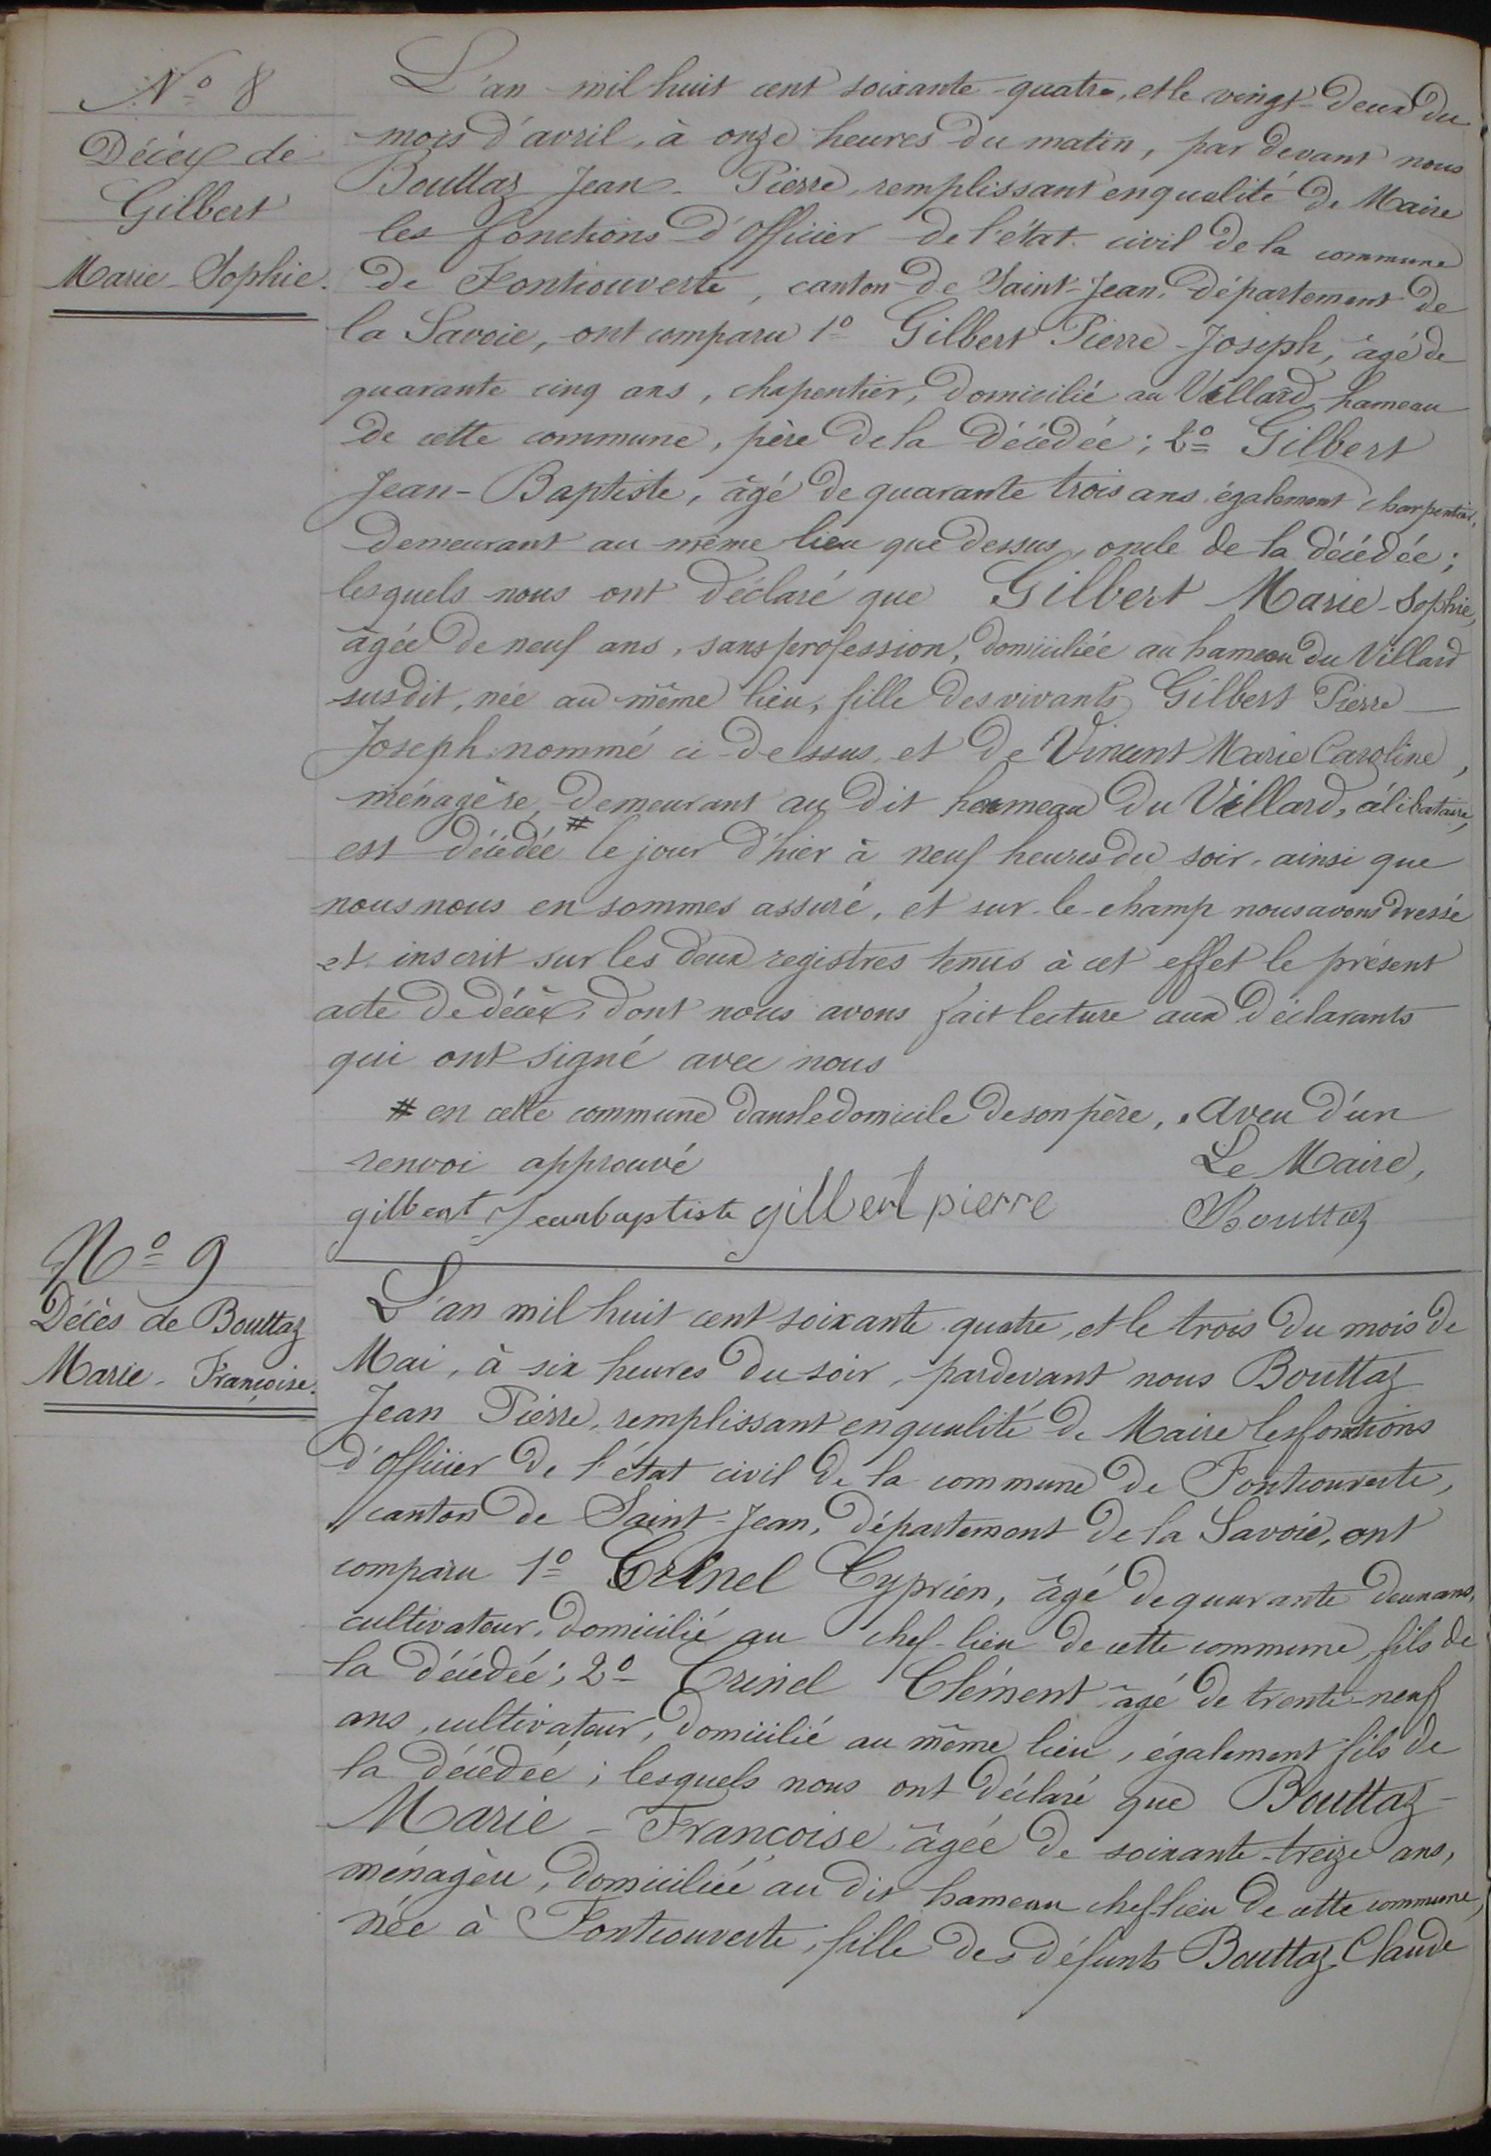 N° 8
Décès de
Gilbert
Marie-Sophie.
L'an mil huit cent soixante-quatre, et le vingt-deux du
mois d'avril, à onze heures du matin, par devant nous
Bouttaz Jean-Pierre, remplissant en qualité de Maire
les fonctions d'Officier de l'état civil de la commune
de Fontcouverte, canton de Saint-Jean, département de
la Savoie, ont comparu 1° Gilbert Pierre-Joseph, âgé de
quarante cinq ans, chapentier, domicilié au Villard, hameau
de cette commune, père de la décédée; 2° Gilbert
Jean-Baptiste, âgé de quarante trois ans également charpentier,
demeurant au même lieu que dessus, oncle de la décédée;
lesquels nous ont déclaré que Gilbert Marie-Sophie,
âgée de neuf ans, sans profession, domiciliée au hameau du Villard
susdit, née au même lieu, fille des vivants Gilbert Pierre
Joseph nommé ci-dessus, et de Vincent Marie Caroline,
ménagère, demeurant au dit hameau du Villard, célibataire,
est décédée # le jour d'hier à neuf heures du soir, ainsi que
nous nous en sommes assuré, et sur-le-champ nous avons dressé
et inscrit sur les deux registres tenus à cet effet le présent
acte de décès, dont nous avons fait lecture aux déclarants
qui ont signé avec nous
# en cette commune dans le domicile de son père, . aveu d'un
renvoi approuvé
Le Maire,
gilbert Jeanbaptiste gilbert pierre
Bouttaz
N° 9
Décès de Bouttaz
Marie-Françoise.
L'an mil huit cent soixante quatre, et le trois du mois de
Mai, à six heures du soir, pardevant nous Bouttaz
Jean Pierre, remplissant en qualité de Maire les fonctions
d'Officier de l'état civil de la commune de Fontcouverte,
canton de Saint-Jean, département de la Savoie, ont
comparu 1° Crinel Cyprien, âgé de quarante deux ans,
cultivateur, domicilié au chef-lieu de cette commune, fils de
la décédée; 2° Crinel Clément âgé de trente-neuf
ans, cultivateur, domicilié au même lieu, également fils de
la décédée; lesquels nous ont déclaré que Bouttaz-
Marie-Françoise, âgée de soixante-treize ans,
ménagère, domiciliée au dit hameau chef-lieu de cette commune,
née à Fontcouverte, fille des défunts Bouttaz Claude